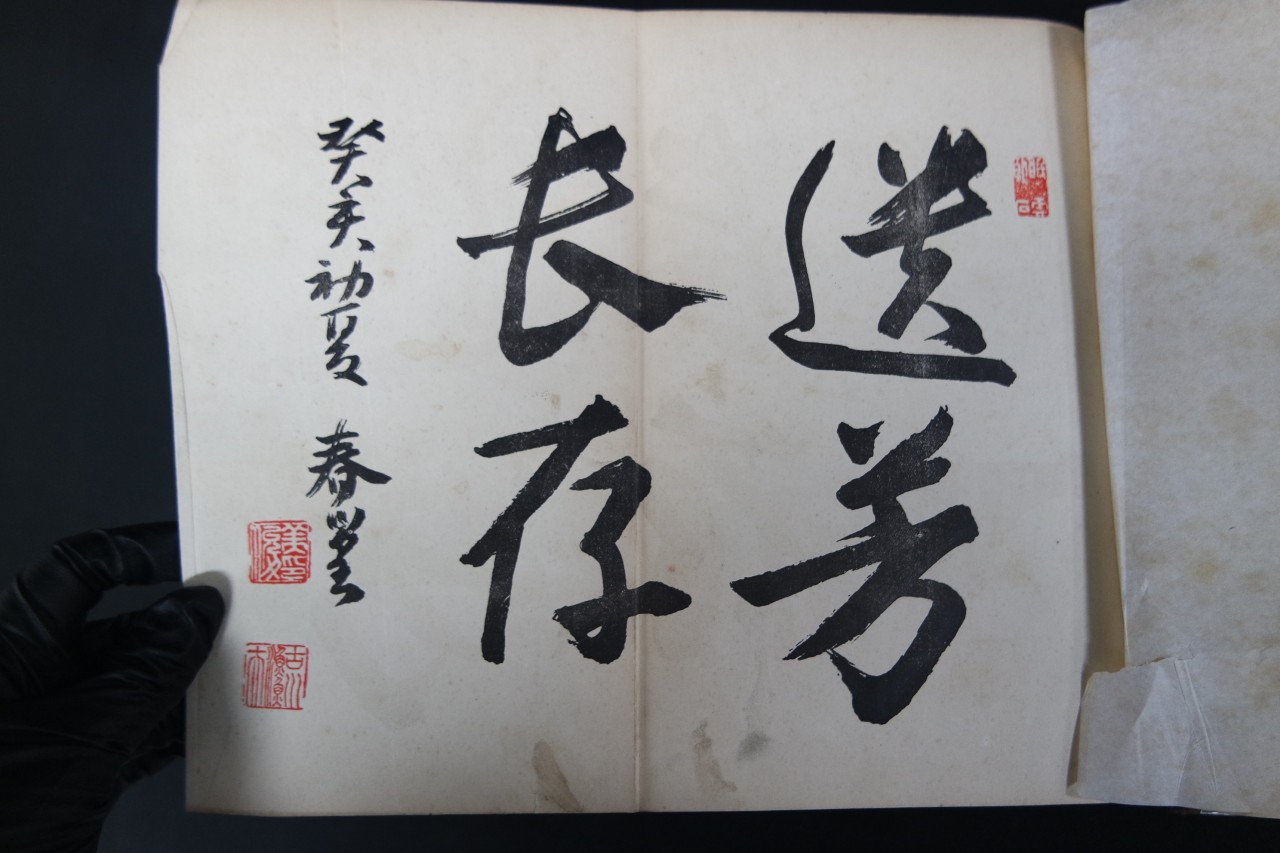 遺芳
長存
癸亥初夏 春堂